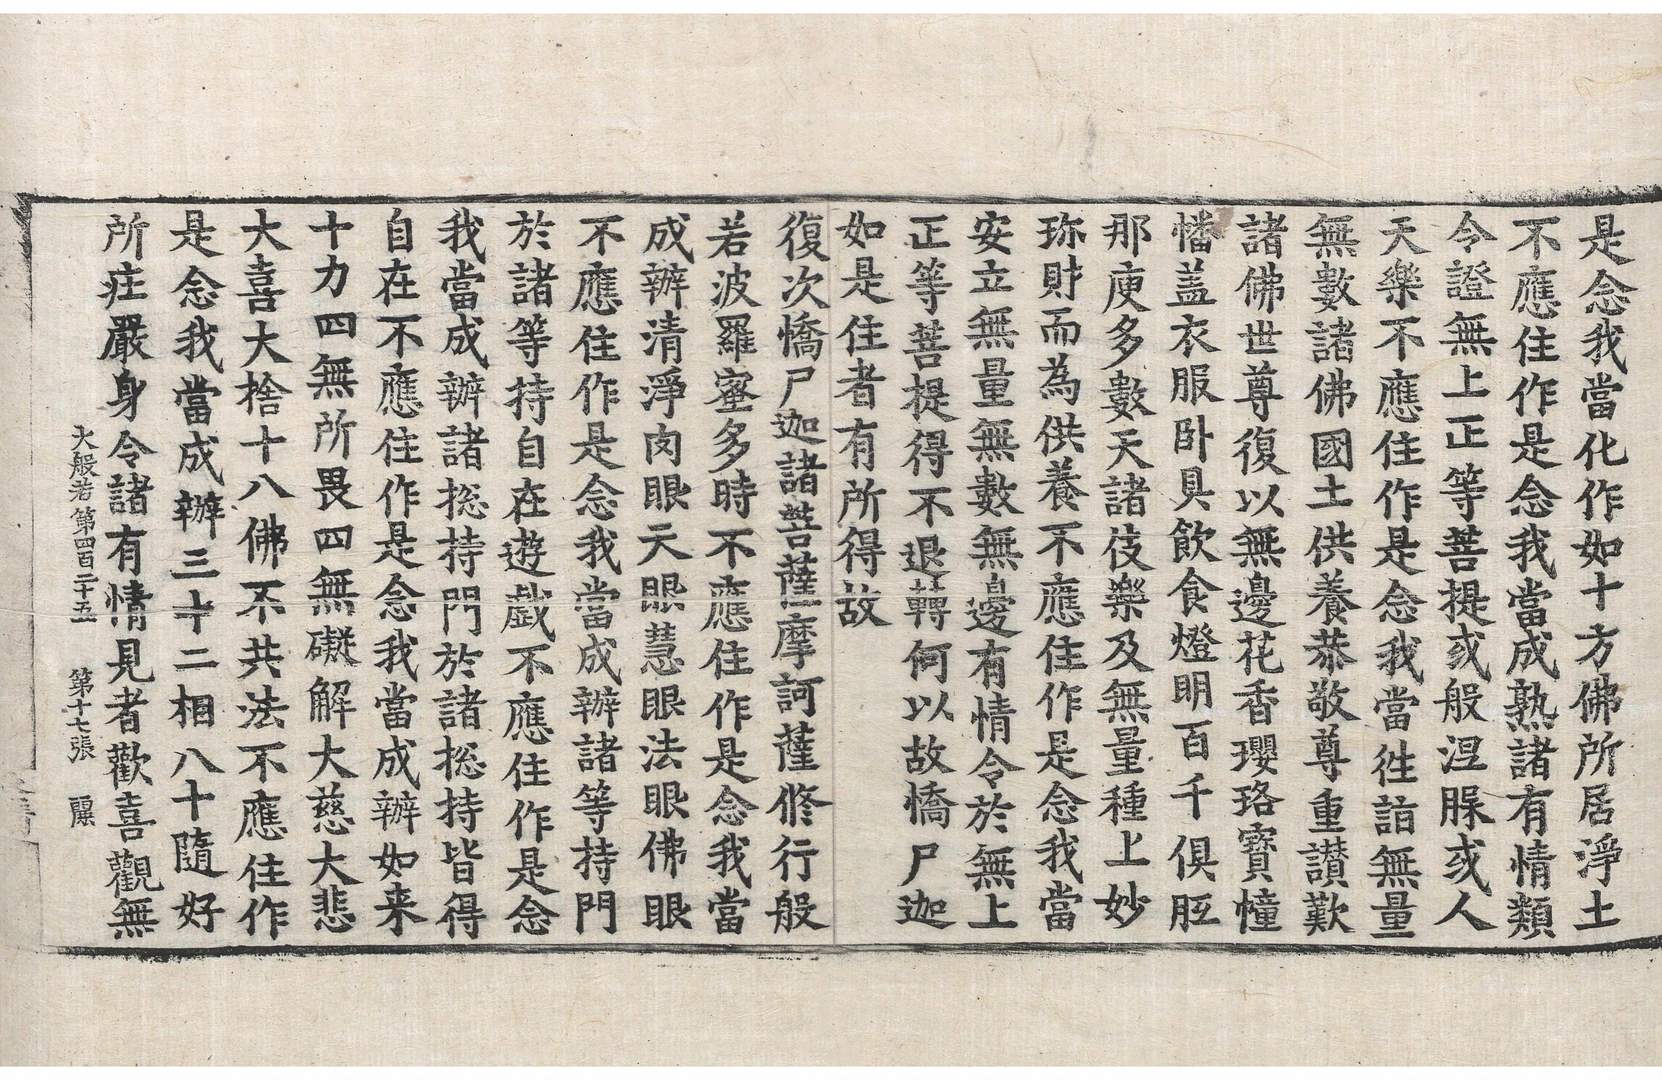 是念我當化作如十方佛所居淨土
不應住作是念我當成熟諸有情類
令證無上正等菩提或般涅脲或人
天樂不應住作是念我當徃詣無量
無數諸佛國土供養恭敬尊重讃歎
諸佛世尊復以無邊花香瓔珞寶幢
幡盖衣服卧具飲食燈明百千俱胝
那庾多數天諸伎樂及無量種上妙
珎財而為供養不應住作是念我當
安立無量無數無邊有情令於無上
正等菩提得不退轉何以故憍尸迦
如是住者有所得故
復次憍尸迦諸菩薩摩訶薩修行般
若波羅蜜多時不應住作是念我當
成辦清淨肉眼天眼慧眼法眼佛眼
不應住作是念我當成辦諸等持門
於諸等持自在遊戲不應住作是念
我當成辦諸捴持門於諸捴持皆得
自在不應住作是念我當成辦如来
十力四無所畏四無礙解大慈大悲
大喜大捨十八佛不共法不應住作
是念我當成辦三十二相八十隨好
所庄嚴身令諸有情見者歡喜觀無
大般若第四百二十五 第十七張 羆